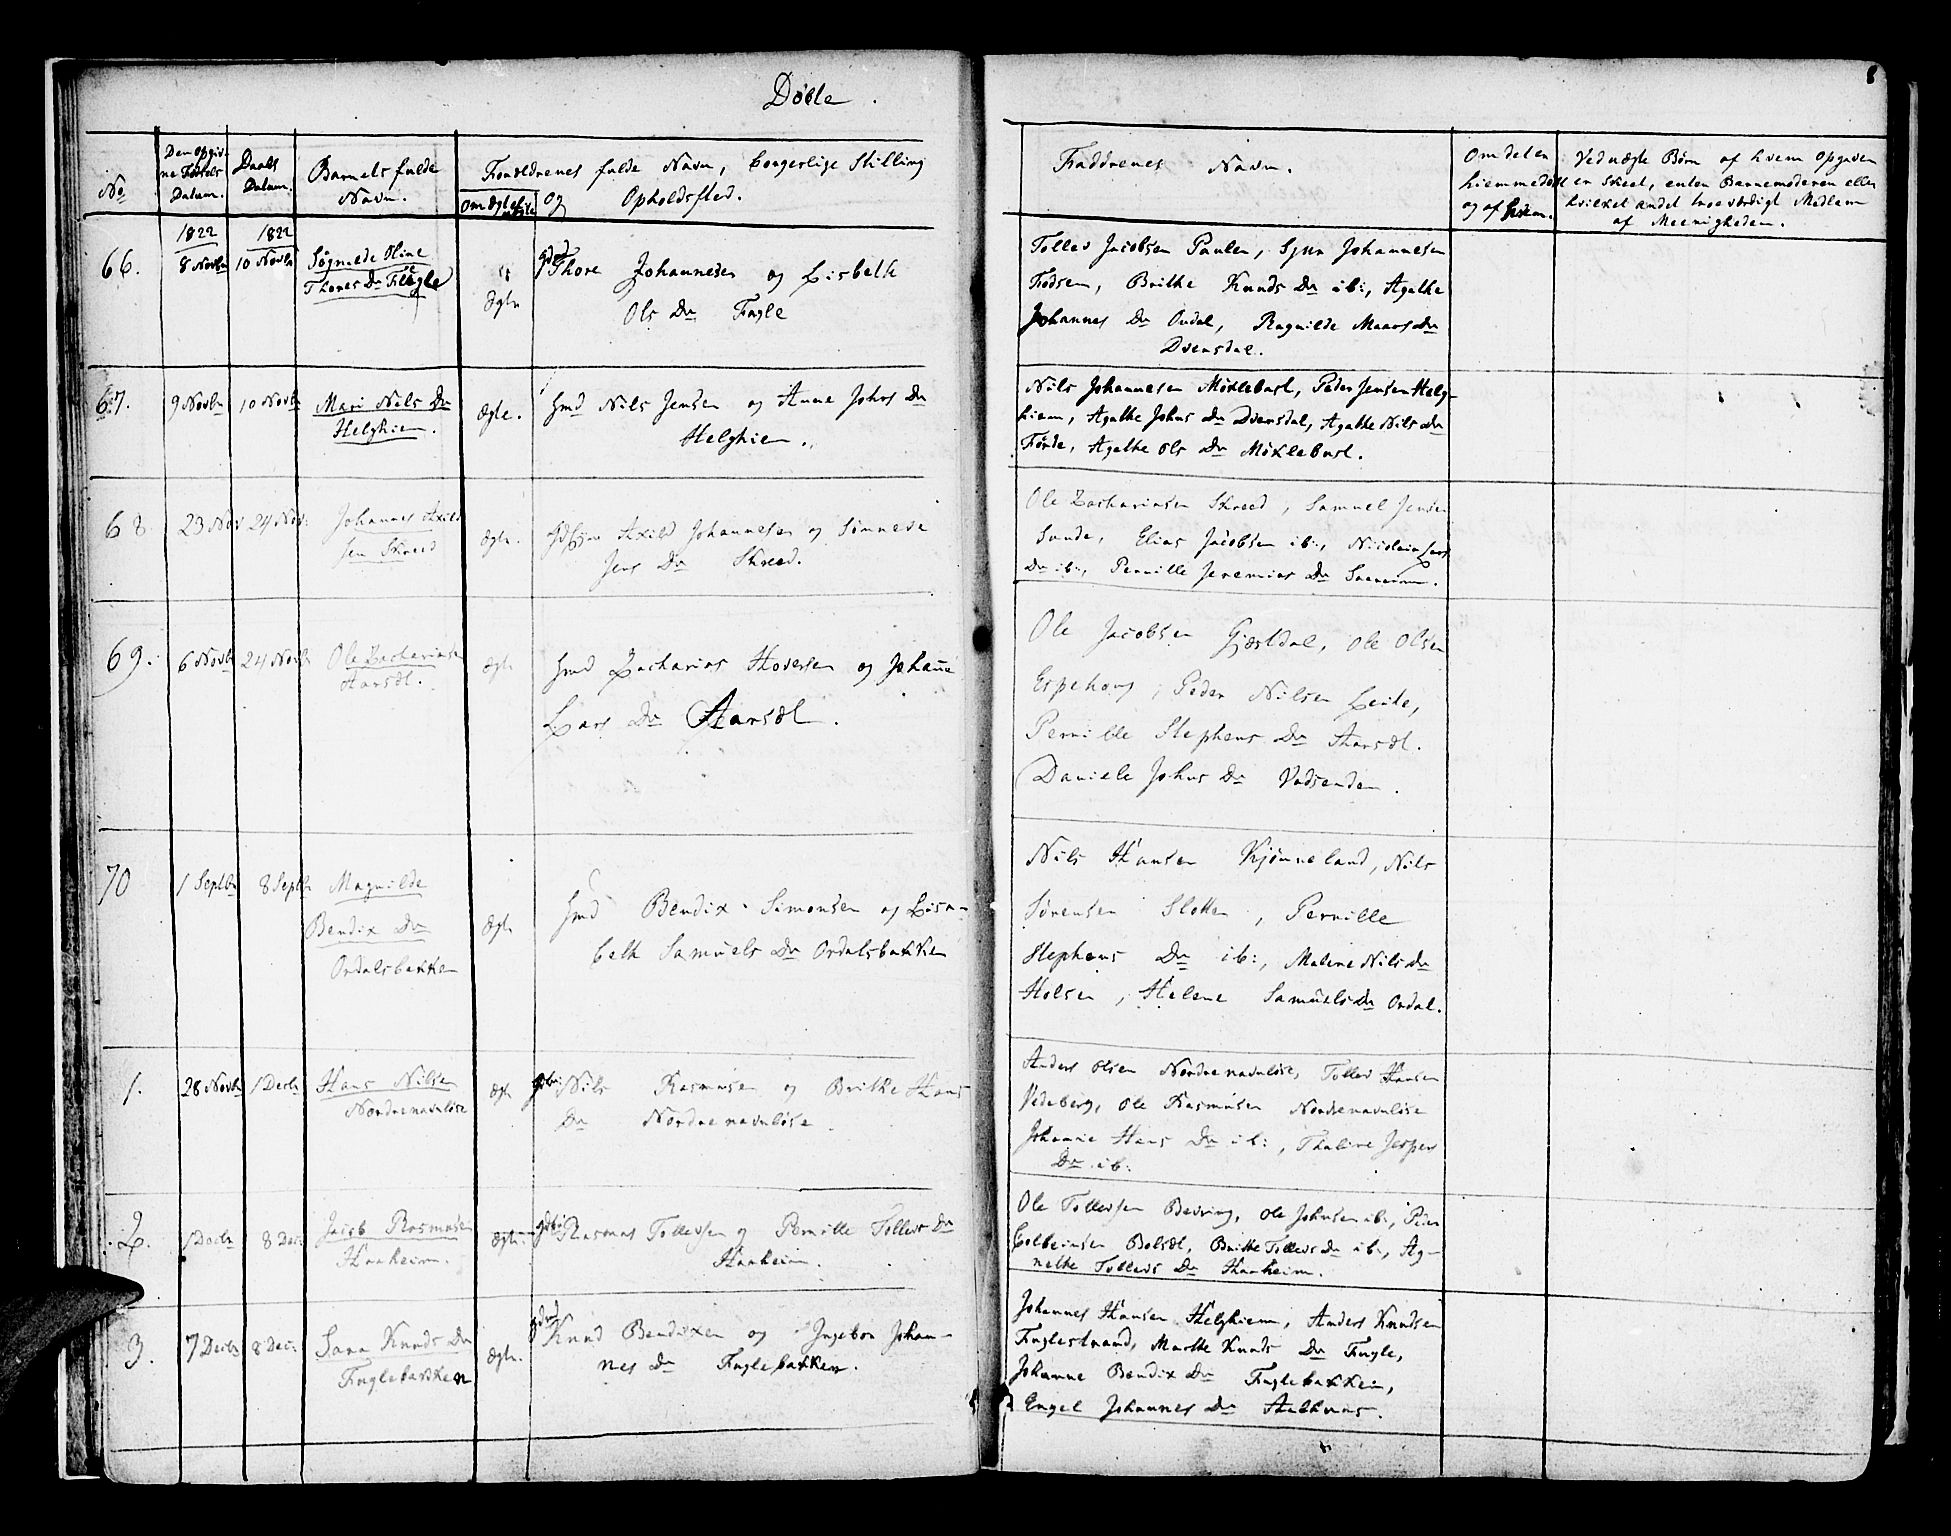 Døbte.
8
No
Den opgiv-
ne Fødsels
Datum.
Daabs
Datum.
Barnets fulde
Navn.
Forældrenes fulde Navn, borgerlige Stilling
Om ægte
og Opholdssted.
Faddrenes Navn.
Om det er
hiemmedøbt
og af hvem.
Ved uægte Børn af hvem Opgaven
er skeet, enten Barnemoderen eller
hvilket andet troeværdigt Medlem
af Meenigheden.
1822 1822
66. 8 Novbr 10 Novbr
Søgnelde Oline
Thores Dr Fugle
Ægte
Gdmd Thore Johannesen og Lisbeth
Ols Dr Fugle
Tollev Jacobsen Paulen, Sjur Johannesen
Fodsem, Brithe Knuds Dr ib:, Agathe
Johannes Dr Ordal, Ragnilde Maars Dr
Dvergsdal.
67. 9 Novbr 10 Novbr
Mari Nils Dr
Helghiem.
Ægte.
Hmd Nils Jensen og Anne Johns Dr
Helghiem.
Nils Johannesen Møklebust, Peder Jensen Helg-
hiem, Agathe Johns Dr Dvergsdal, Agathe Nils Dr
Førde, Agathe Ols Dr Møklebust.
68 23 Nov 24 Nov:
Johannes Axild
sen Skreed
Ægte.
Axild Johannesen og Sønneve
Jens Dr Skreed.
Ole Zachariasen Skreed, Samuel Jensen
Sunde, Elias Jacobsen ib:, Nicolaia Lars
Dr ib:, Pernille Jeremias Dr
69. 6 Novbr 24 Novbr
Ole Zachariasen
Aarsæt.
Ægte
Hmd Zacharias Hoversen og Johanne
Lars Dr Aarsæt.
Ole Jacobsen Gjæstdal, Ole Olsen
Espehoug, Peder Nilsen Leite,
Pernille Stephens Dr Aarsæt.
Daniele Johns Dr Vadsenden.
70 1 Septbr 8 Septbr
Magnilde
Bendix Dr
Ordalsbakken
Ægte
Hmd Bendix Simonsen og Lisa-
beth Samuels Dr Ordalsbakken
Nils Hansen Kjønneland, Nils
Sørensen Slotten, Pernille
Stephens Dr ib:, Malene Nils Dr
Holsen, Helene Samuels Dr Ordal.
1. 28 Novbr 1 Decbr
Hans Nilsen
Nordrenavnløse
Ægte
Nils Rasmusen og Brithe Hans
Dr Nordrenavnløse.
Anders Olsen Nordrenavnløse, Tollev Hansen
Vedeberg, Ole Rasmusen Nordrenavnløse
Johanne Hans Dr ib:, Thaline Jespers
Dr ib:
2. 1 Decbr 8 Dec:
Jacob Rasmusen
Haaheim.
Ægte.
Rasmus Tollevsen og Pernille Tollevs Dr
Haaheim.
Ole Tollevsen Bevring, Ole Johnsen ib:, Peder
Colbeinsen Bolsæt, Brithe Tollevs Dr ib:, Ag-
nethe Tollevs Dr Haaheim.
3. 7 Decbr 8 Dec:
Sara Knuds Dr
Fuglebakken
Ægte.
Gdmd Knud Bendixen og Ingebor Johan-
nes Dr Fuglebakken.
Johannes Hansen Helghiem, Anders Knudsen
Fuglestrand, Marthe Knuds Dr Fugle,
Johanne Bendix Dr Fuglebakken,
Engel Johannes Dr